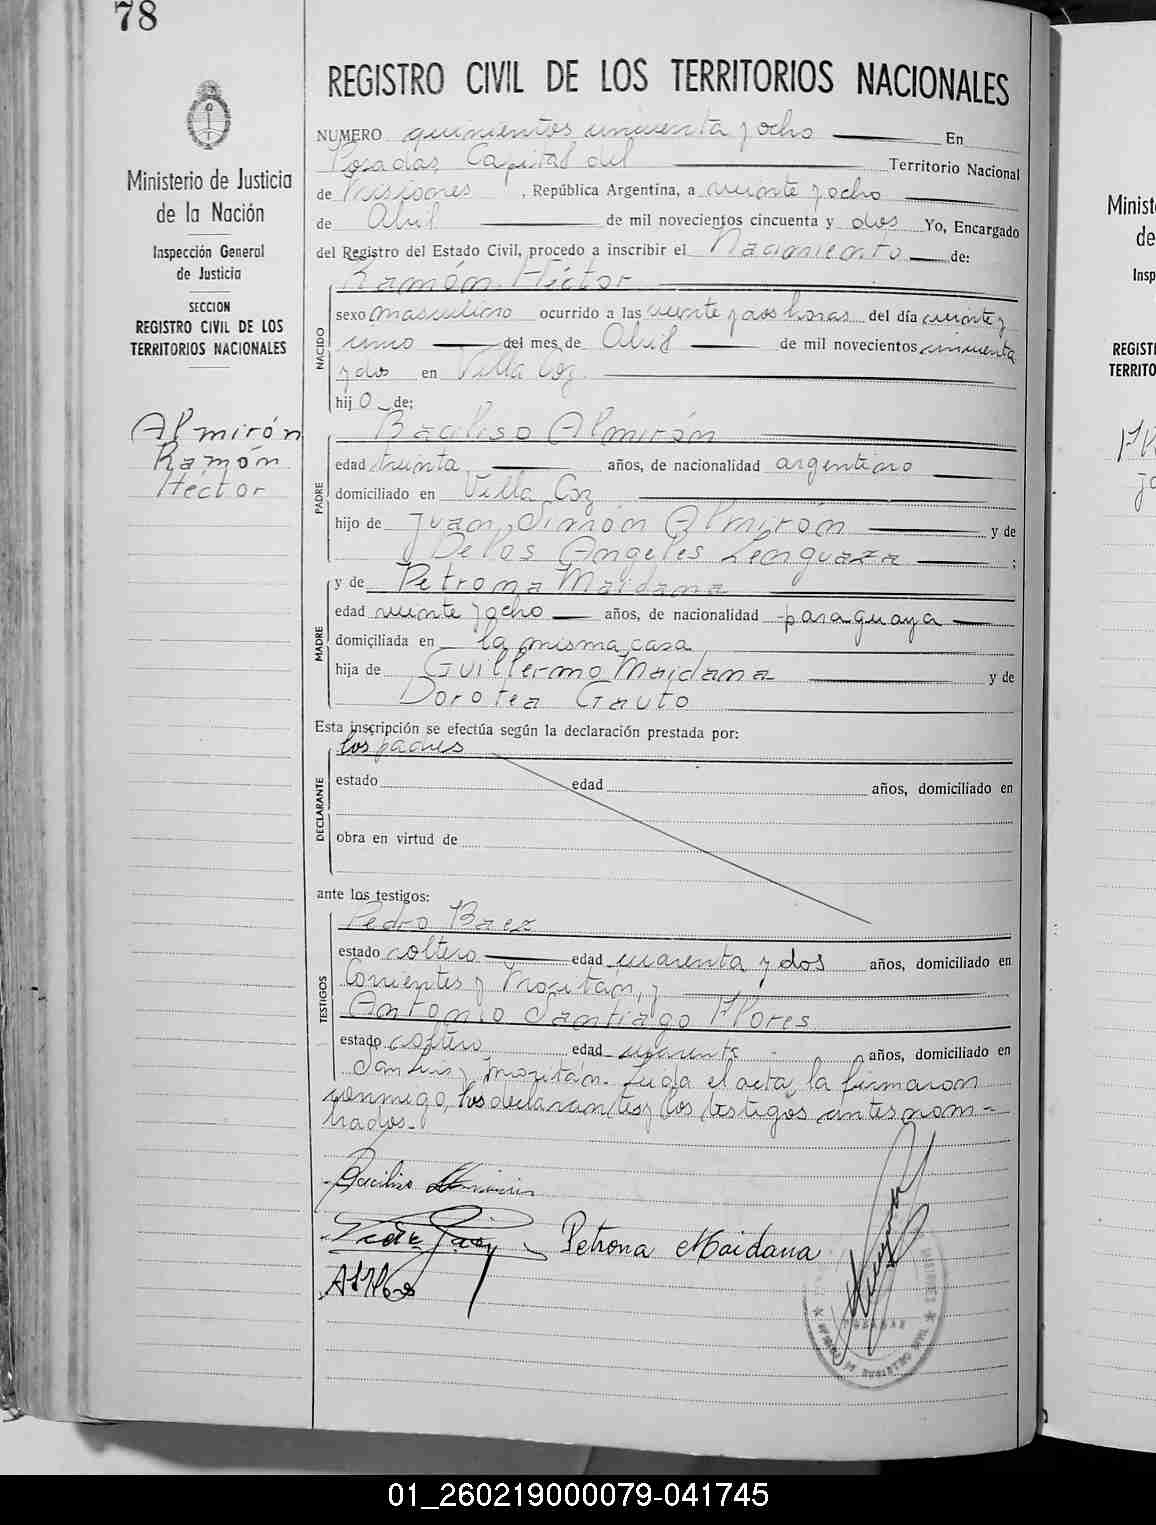 78
REGISTRO CIVIL DE LOS TERRITORIOS NACIONALES
Ministerio de Justicia
de la Nación
Inspección General
de Justicia
SECCION
REGISTRO CIVIL DE LOS
TERRITORIOS NACIONALES
Almirón
Ramón
Hector
NUMERO quinientos cincuenta y ocho En
Posadas, Capital del Territorio Nacional
de Misiones, República Argentina, a veinte y ocho
de Abril de mil novecientos cincuenta y dos Yo, Encargado
del Registro del Estado Civil, procedo a inscribir el Nacimiento de:
NACIDO
Ramón Héctor
sexo masculino ocurrido a las veinte y dos horas del día veinte y
uno del mes de Abril de mil novecientos cincuenta
y dos en Villa Coz
hijo de:
PADRE
Baciliso Almirón
edad treinta años, de nacionalidad argentino
domiciliado en Villa Coz
hijo de Juan Simón Almirón y de
De los Angeles Lenguaza;
MADRE
y de Petrona Maidana
edad veinte y ocho años, de nacionalidad paraguaya
domiciliada en la misma casa
hija de Guillermo Maidana y de
Dorotea Gauto
Esta inscripción se efectúa según la declaración prestada por:
DECLARANTE
los padres
estado edad años, domiciliado en
obra en virtud de
ante los testigos:
TESTIGOS
Pedro Baez
estado soltero edad cuarenta y dos años, domiciliado en
Corrientes y Tropitan, y
Antonio Santiago Flores
estado soltero edad cuarenta años, domiciliado en
San Luis y Leida el acta, la firmaron
conmigo, los declarantes y los testigos antes nom-
brados.-
Baciliso Almirón
Petrona Maidana
POSADAS
Minist
de
Insp
REGISTI
TERRITO
01_260219000079-041745